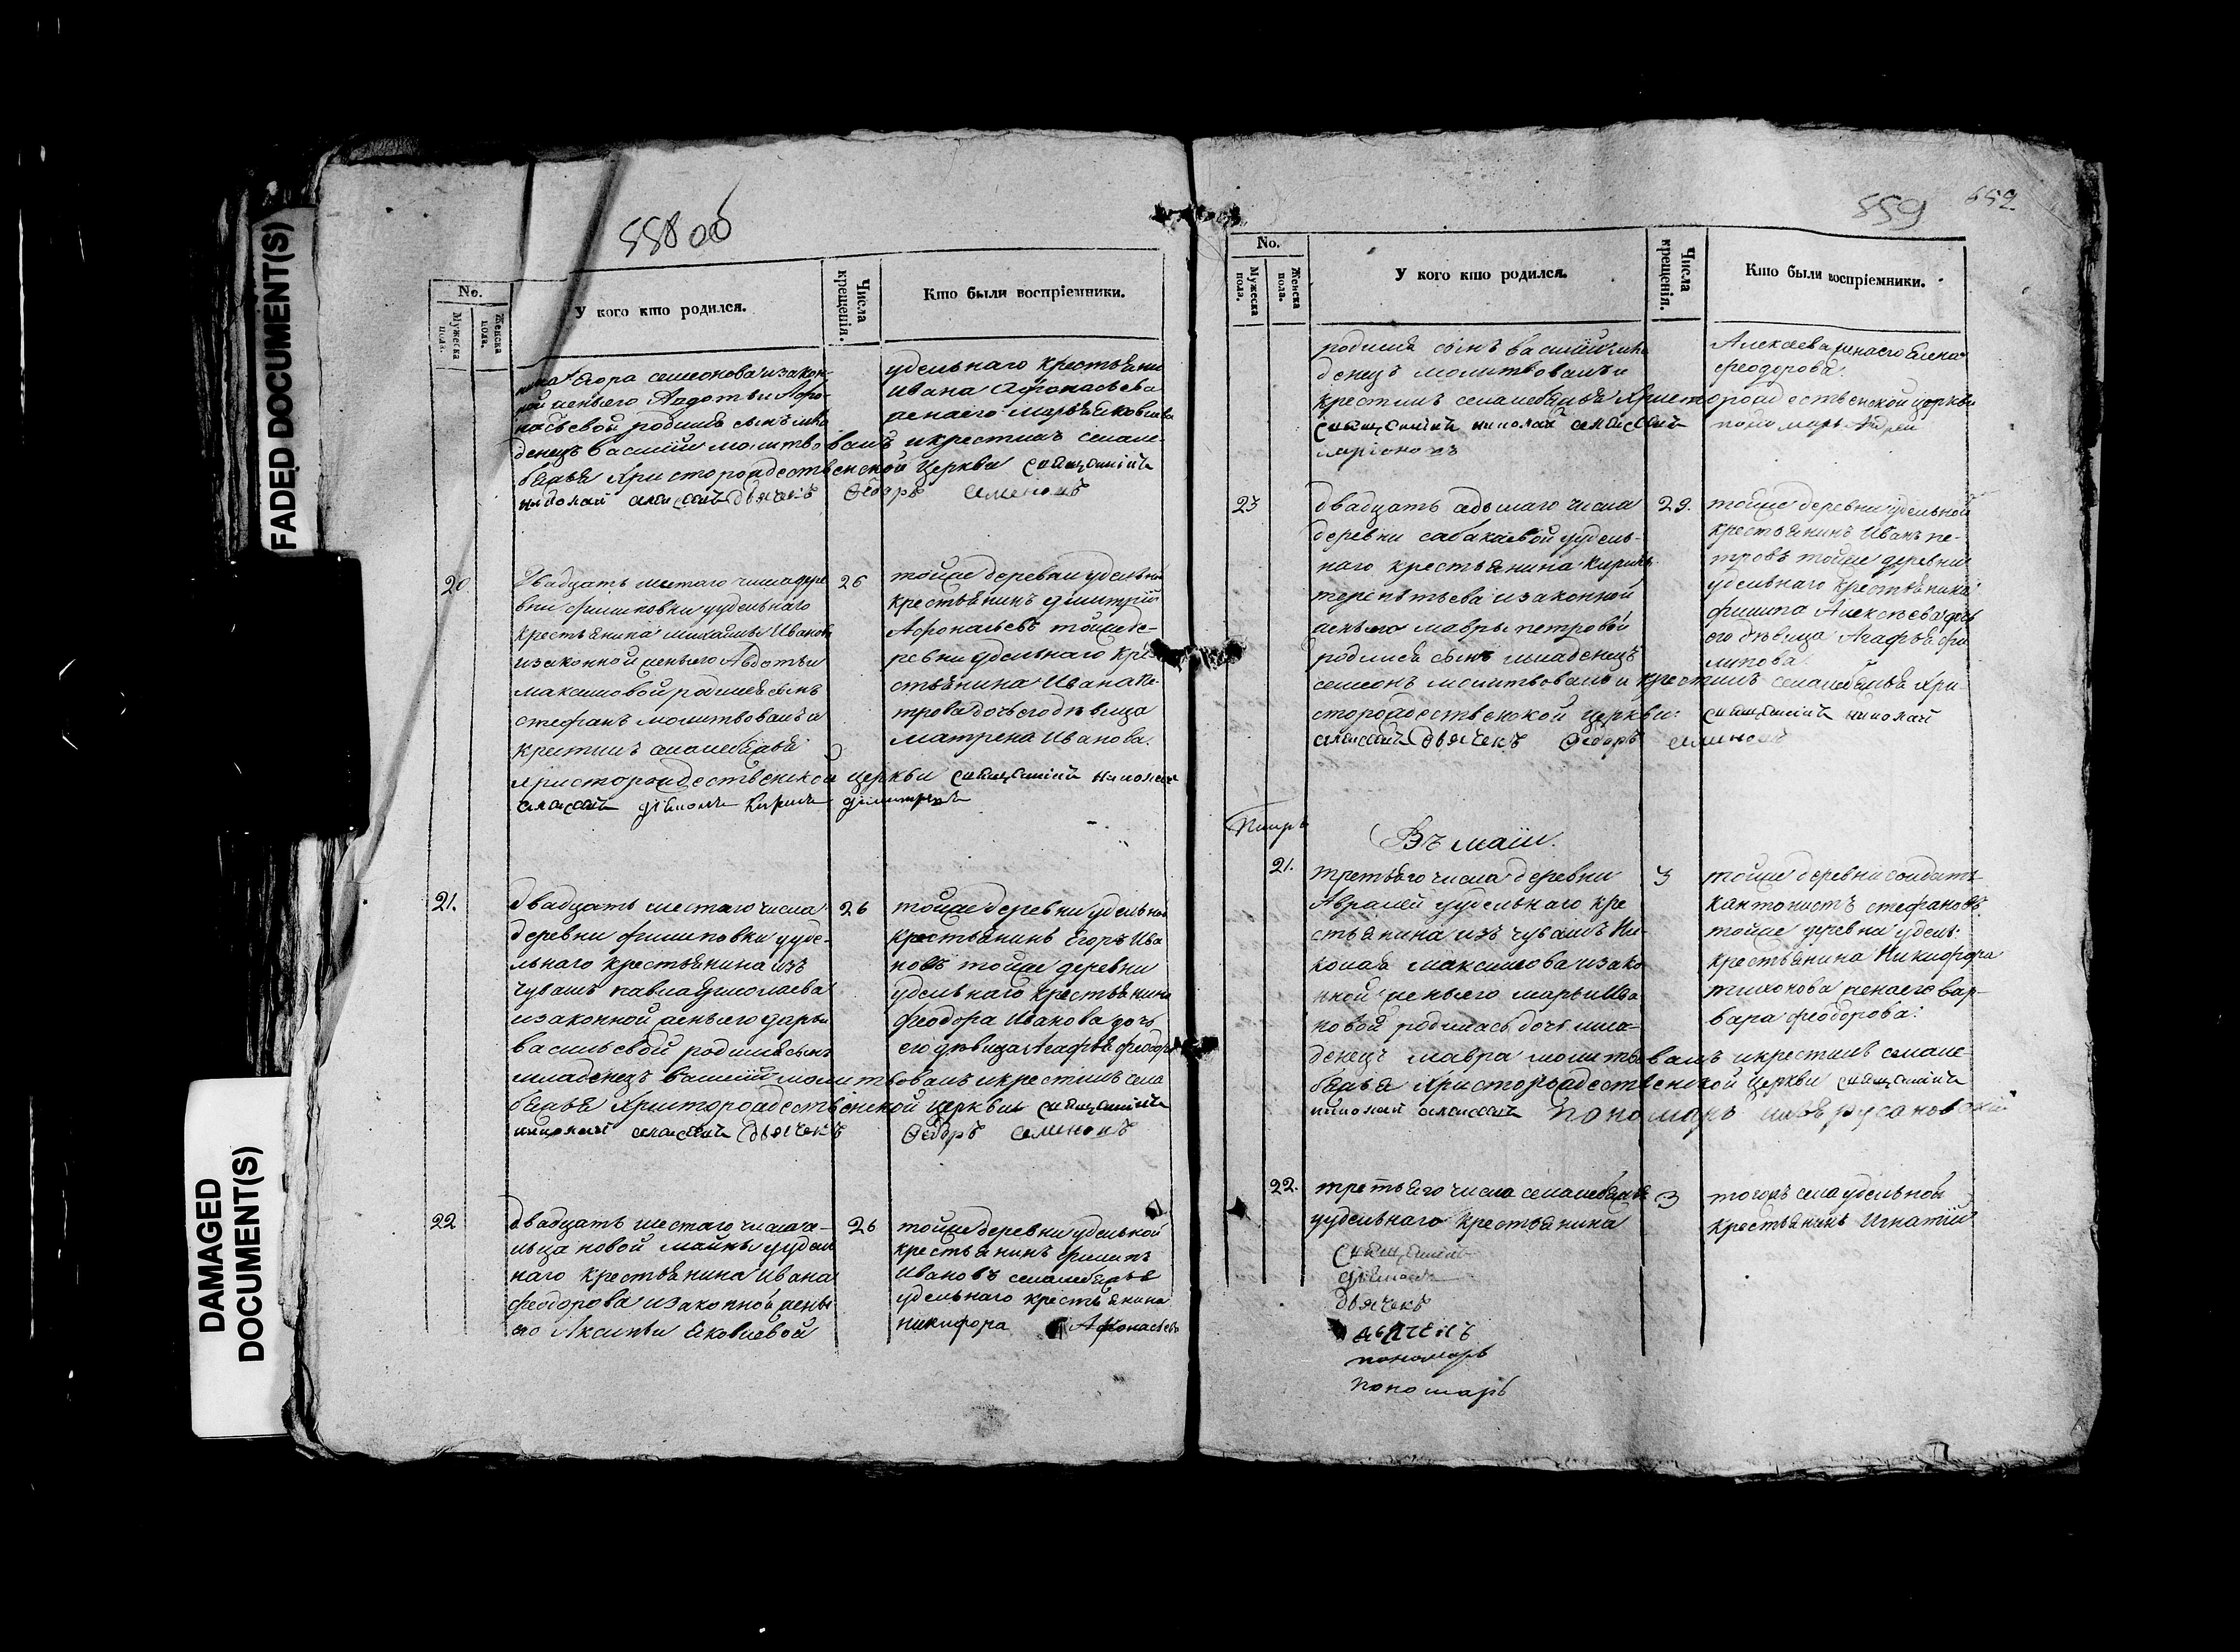 FADED DOCUMENT(S)
DAMAGED
DOCUMENT(S)
558 об
No.
Мужеска пола.
Женска пола.
У кого кто родился.
Числа крещенія.
Кто были воспріемники.
Егора семеонова изакон-
ной жены его Авдотьи Афо-
насьевой родился сынъ мла
денецъ василий молитвовалъ и крестилъ села ме-
Христорождественской церкви священникъ
николай алексеевъ дьячекъ Ѳедоръ семеновъ
удельнаго крестьяни
Ивана Афонасьева
жена его Марья Яковлева
20
двадцать шестаго числа дере
вни филиповки у удельнаго
крестьянина михайлы Иванова
изаконной жены его Авдотьи
максимовой родился сынъ
стефанъ молитвовалъ и
крестилъ села
христорождественской церкви священникъ николай
алексеевъ диаконъ Кирилъ димитревъ
26
тойже деревни удельной
крестьянинъ димитрий
Афонасьевъ тойже де-
ревни удельнаго кре-
стьянина Ивана Пе-
трова дочь его девица
матрена Иванова.
21.
двадцать шестаго числа
деревни филиповки у уде-
льнаго крестьянина изъ
чувашъ павла николаева
изаконной жены его дарьи
васильевой родился сынъ
младенецъ василий молитвовалъ и крестилъ села
Христорождественской церкви священникъ
николай алексеевъ дьячекъ Ѳедоръ семеновъ
26
тойже деревни удельной
крестьянинъ Егоръ Ива
новъ тойже деревни
удельнаго крестьянина
феодора Иванова дочь
его девица Агафья феодорова
22
двадцать шестаго числа се-
льца новой майны у удель
наго крестьянина Ивана
феодорова изаконной жены
его Аксиньи Яковлевой
26
тойже деревни удельной
крестьянинъ филипъ
Ивановъ села
удельнаго крестьянина
никифора Афонасьева
559
652
No.
Мужеска пола.
Женска пола.
У кого кто родился.
Числа крещенія.
Кто были воспріемники.
родился сынъ василий мла
денецъ молитвовалъ и
крестилъ села Христорождественской церкви
священникъ николай алексеевъ пономарь Андрей
Алексеева жена его Елена
феодорова.
23
двадцать седьмаго числа
деревни сабакаевой у удель-
наго крестьянина Кирилы
терентьева изаконной
жены его мавры петровой
родился сынъ младенецъ
семеонъ молитвовалъ и крестилъ села Хри-
сторождественской церкви священникъ николай
алексеевъ дьячекъ Ѳедоръ семеновъ
29.
тойже деревни удельной
крестьянинъ Иванъ пе-
тровъ тойже деревни
удельнаго крестьянина
филипа Алексеева дочь
его девица Агафья фи
липова.
Въ маии.
21.
третьяго числа деревни
Авралей у удельнаго кре
стьянина изъ чувашъ Ни-
колая максимова изако
нной жены его марьи Ива
новой родилась дочь мла-
денецъ мавра молитвовалъ и крестилъ села
Христорождественской церкви священникъ
николай алексеевъ пономарь
3
тойже деревни солдатъ
кантонистъ стефановъ.
тойже деревни удель.
крестьянина Никифора
тихонова жена его вар-
вара феодорова.
22.
третьяго числа села
у удельнаго крестьянина
3
тогожъ села удельной
крестьянинъ Игнатий
священникъ
диаконъ
дьячекъ
дьячекъ
пономарь
пономарь